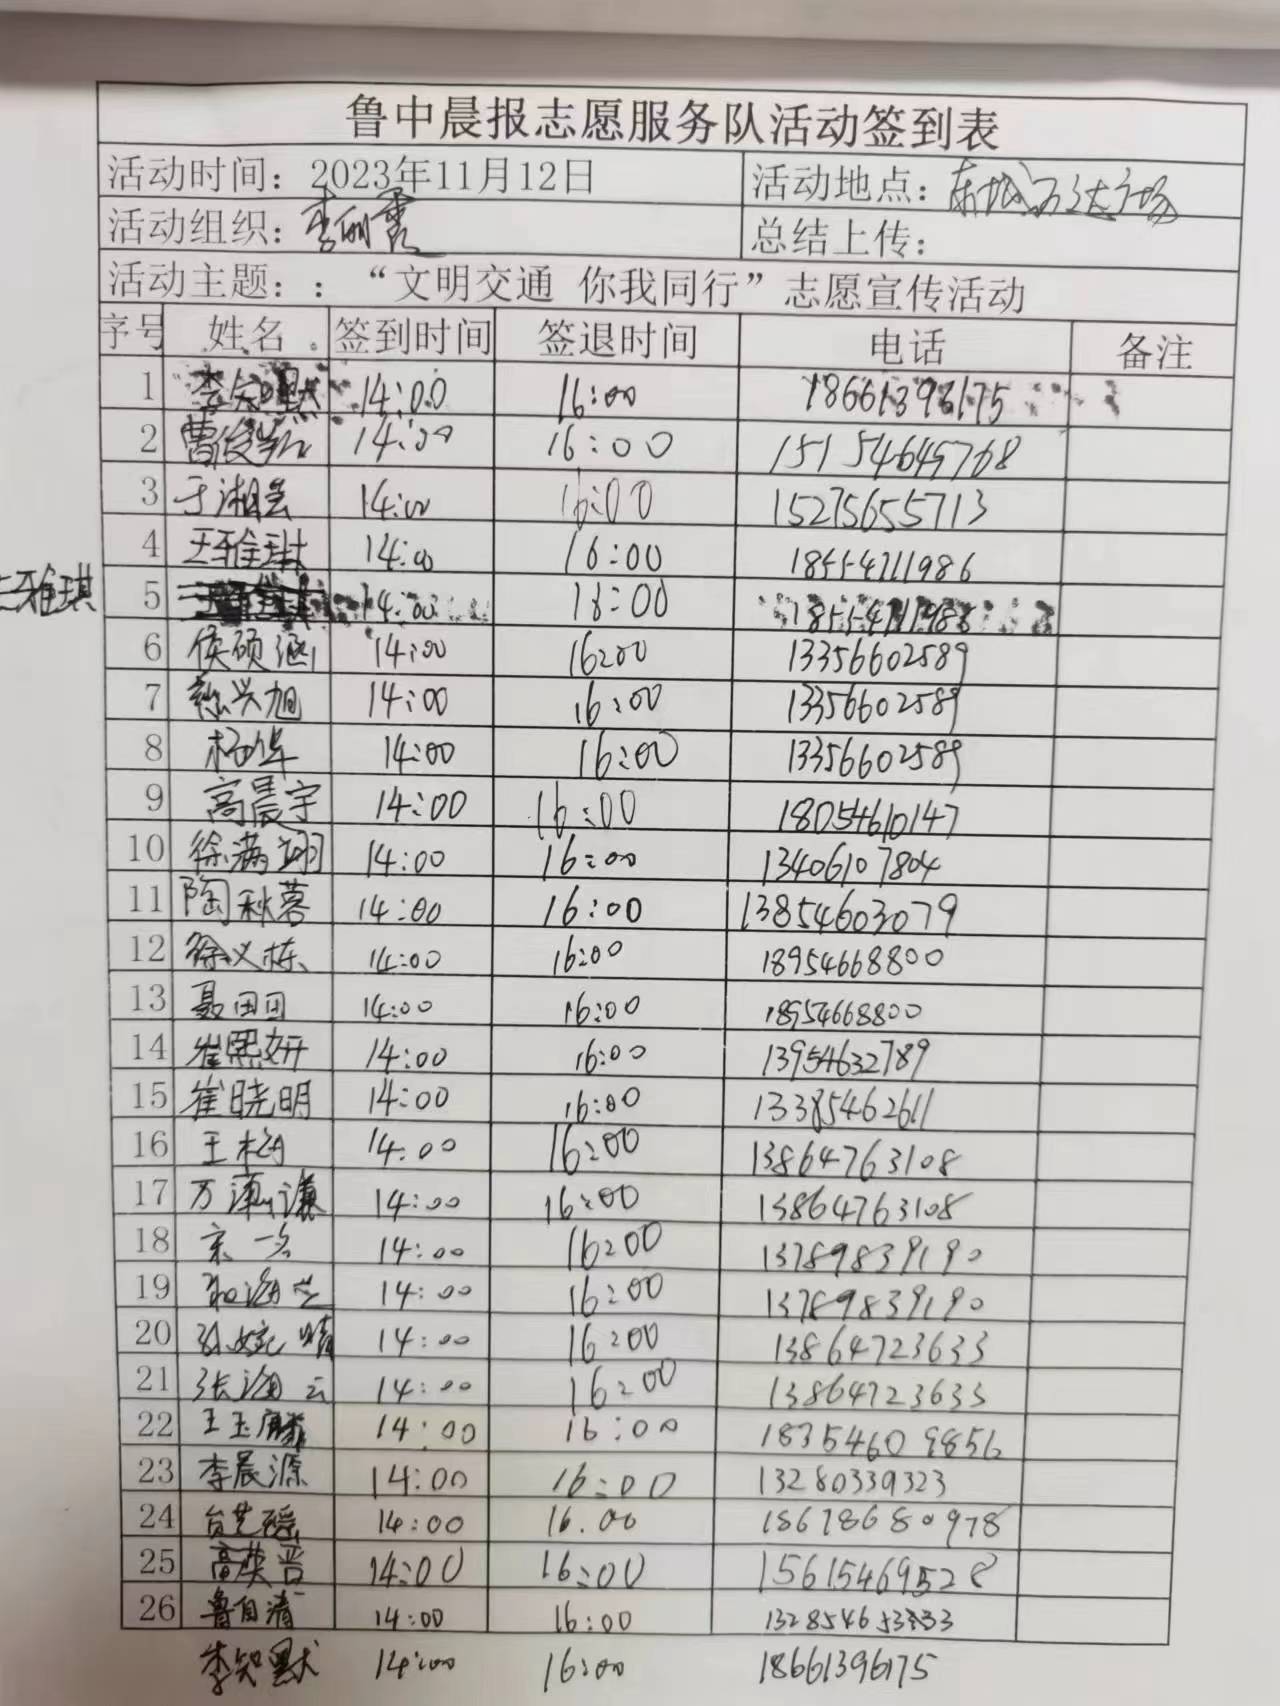 鲁中晨报志愿服务队活动签到表
活动时间：2023年11月12日 活动地点：东城万达广场
活动组织：李丽霞 总结上传：
活动主题：：“文明交通 你我同行”志愿宣传活动
序号 姓名 签到时间 签退时间 电话 备注
1 李知默 14:00 16:00 18661396175
2 曹俊 14:00 16:00 15154645768
3 于湘 14:00 16:00 15275655713
4 王雅琪 14:00 16:00 18554711986
王雅琪 5 14:00 18:00 18554711986
6 侯硕涵 14:00 16:00 13356602589
7 兴旭 14:00 16:00 13356602589
8 杨华 14:00 16:00 13356602589
9 高晨宇 14:00 16:00 18054610147
10 徐满翊 14:00 16:00 13406107804
11 陶秋蓉 14:00 16:00 13854603079
12 徐义栋 14:00 16:00 18954668800
13 聂田田 14:00 16:00 18954668800
14 崔熙妍 14:00 16:00 13954632789
15 崔晓明 14:00 16:00 13385462611
16 王梅 14:00 16:00 13864763108
17 万谦 14:00 16:00 13864763108
18 宋一名 14:00 16:00 13789839190
19 海兰 14:00 16:00 13789839190
20 孙婉晴 14:00 16:00 13864723633
21 张海云 14:00 16:00 13864723633
22 王玉麟 14:00 16:00 18354609856
23 李晨源 14:00 16:00 13280339323
24 台艺瑶 14:00 16.00 18678680978
25 高英晋 14:00 16:00 15615469528
26 鲁自清 14:00 16:00 13285465333
李知默 14:00 16:00 18661396175